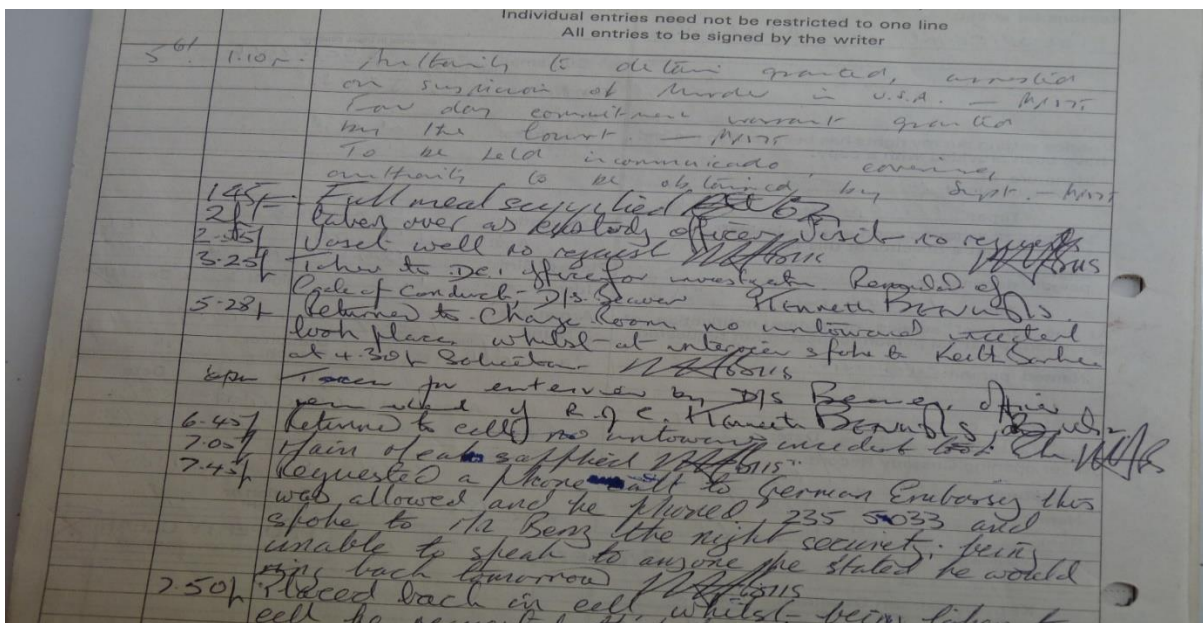 Individual entries need not be restricted to one line
All entries to be signed by the writer
5 6/ 1.10p. Authority to detain granted, arrested
on suspicion of Murder in U.S.A. —
Four day commitment warrant granted
by the Court. —
To be held incommunicado, covering
authority to be obtained by Supt. —
1.45p Full meal supplied
2p Taken over as custody officer, Visit no requests
2.55p Visit well no request
3.25p Taken to DCI office for Reminded of
Code of Conduct, D/S. Beaver Kenneth BEEVER D/S.
5.28p Returned to Charge Room no untoward incident
took place, whilst at interview spoke to Keith
at 4.30p Solicitor.
6pm Taken for interview by D/S Beever, officer
reminded of Kenneth
6.45p Returned to cell, no untoward incident took
7.05p Main Meal supplied
7.45p Requested a phone call to German Embassy this
was allowed and he phoned 235 5033 and
spoke to Mr Benz the night security; being
unable to speak to anyone he stated he would
ring back tomorrow
7.50p Placed back in cell, whilst being taken to
cell he